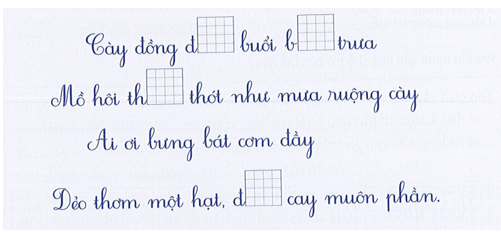 Cày đồng đ□ buổi b□ trưa
Mồ hôi th□ thót như mưa ruộng cày
Ai ơi bưng bát cơm đầy
Dẻo thơm một hạt, đ□ cay muôn phần.